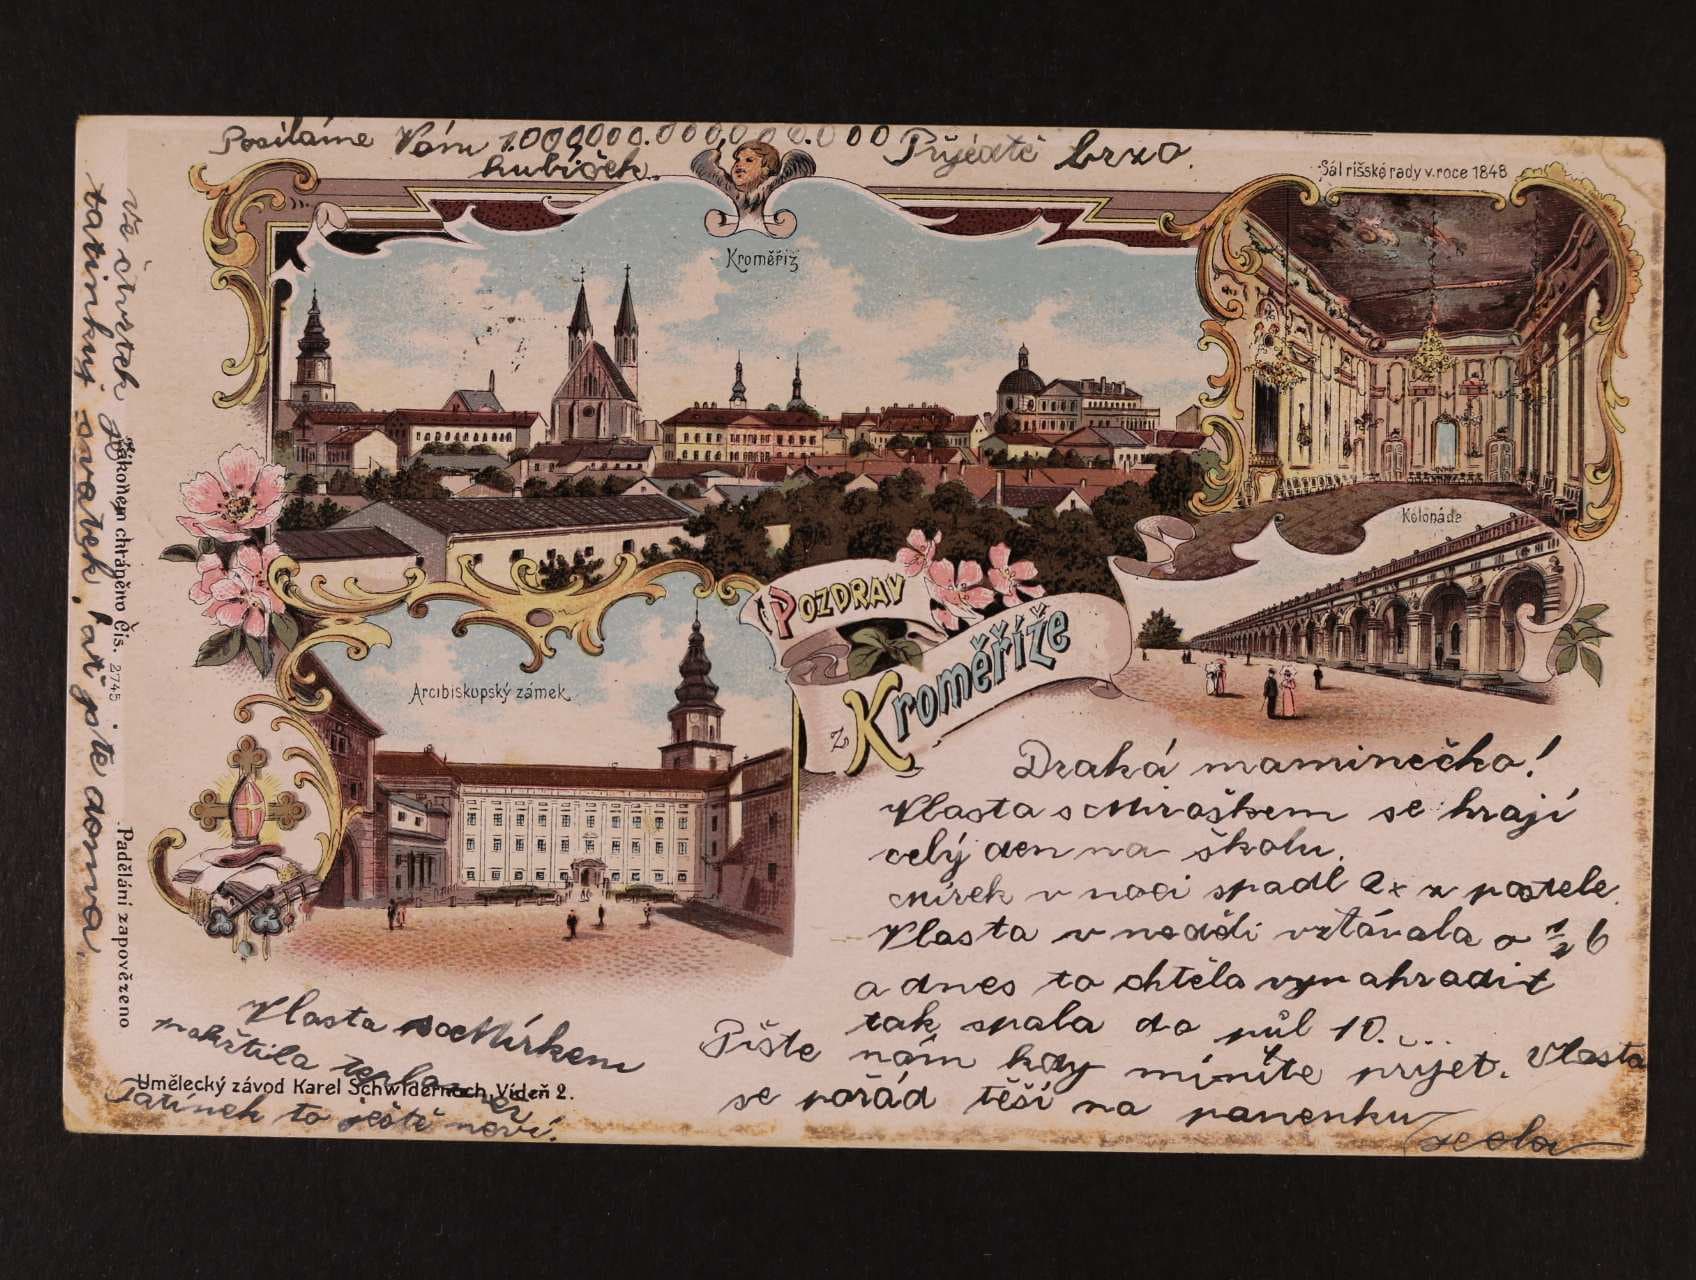 Posíláme Vám 1.000,000.000,000.000 Přijeďte brzo.
hubiček.
Sál říšské rady v. roce 1848
Kroměříž
Kolonáda
Arcibiskupský zámek
POZDRAV
z Kroměříže
Drahá maminečko!
Vlasta s Miroškem se hrají
celý den na školu.
Mírek v noci spadl 2x z postele.
Vlasta v neděli vstávala o ½ 6
a dnes to chtěla vynahradit
tak spala do půl 10...
Pište nám kdy míníte přijet. Vlasta
se pořád těší na panenku
Vlasta s Mírkem
pokřtila
Umělecký závod Karel Schwidernoch, Vídeň 2.
Tatínek to ještě neví.
Ve čtvrtek je
tatínkuj svátek, ať jste doma.
Zákonem chráněno čís. 2745
Padělání zapovězeno